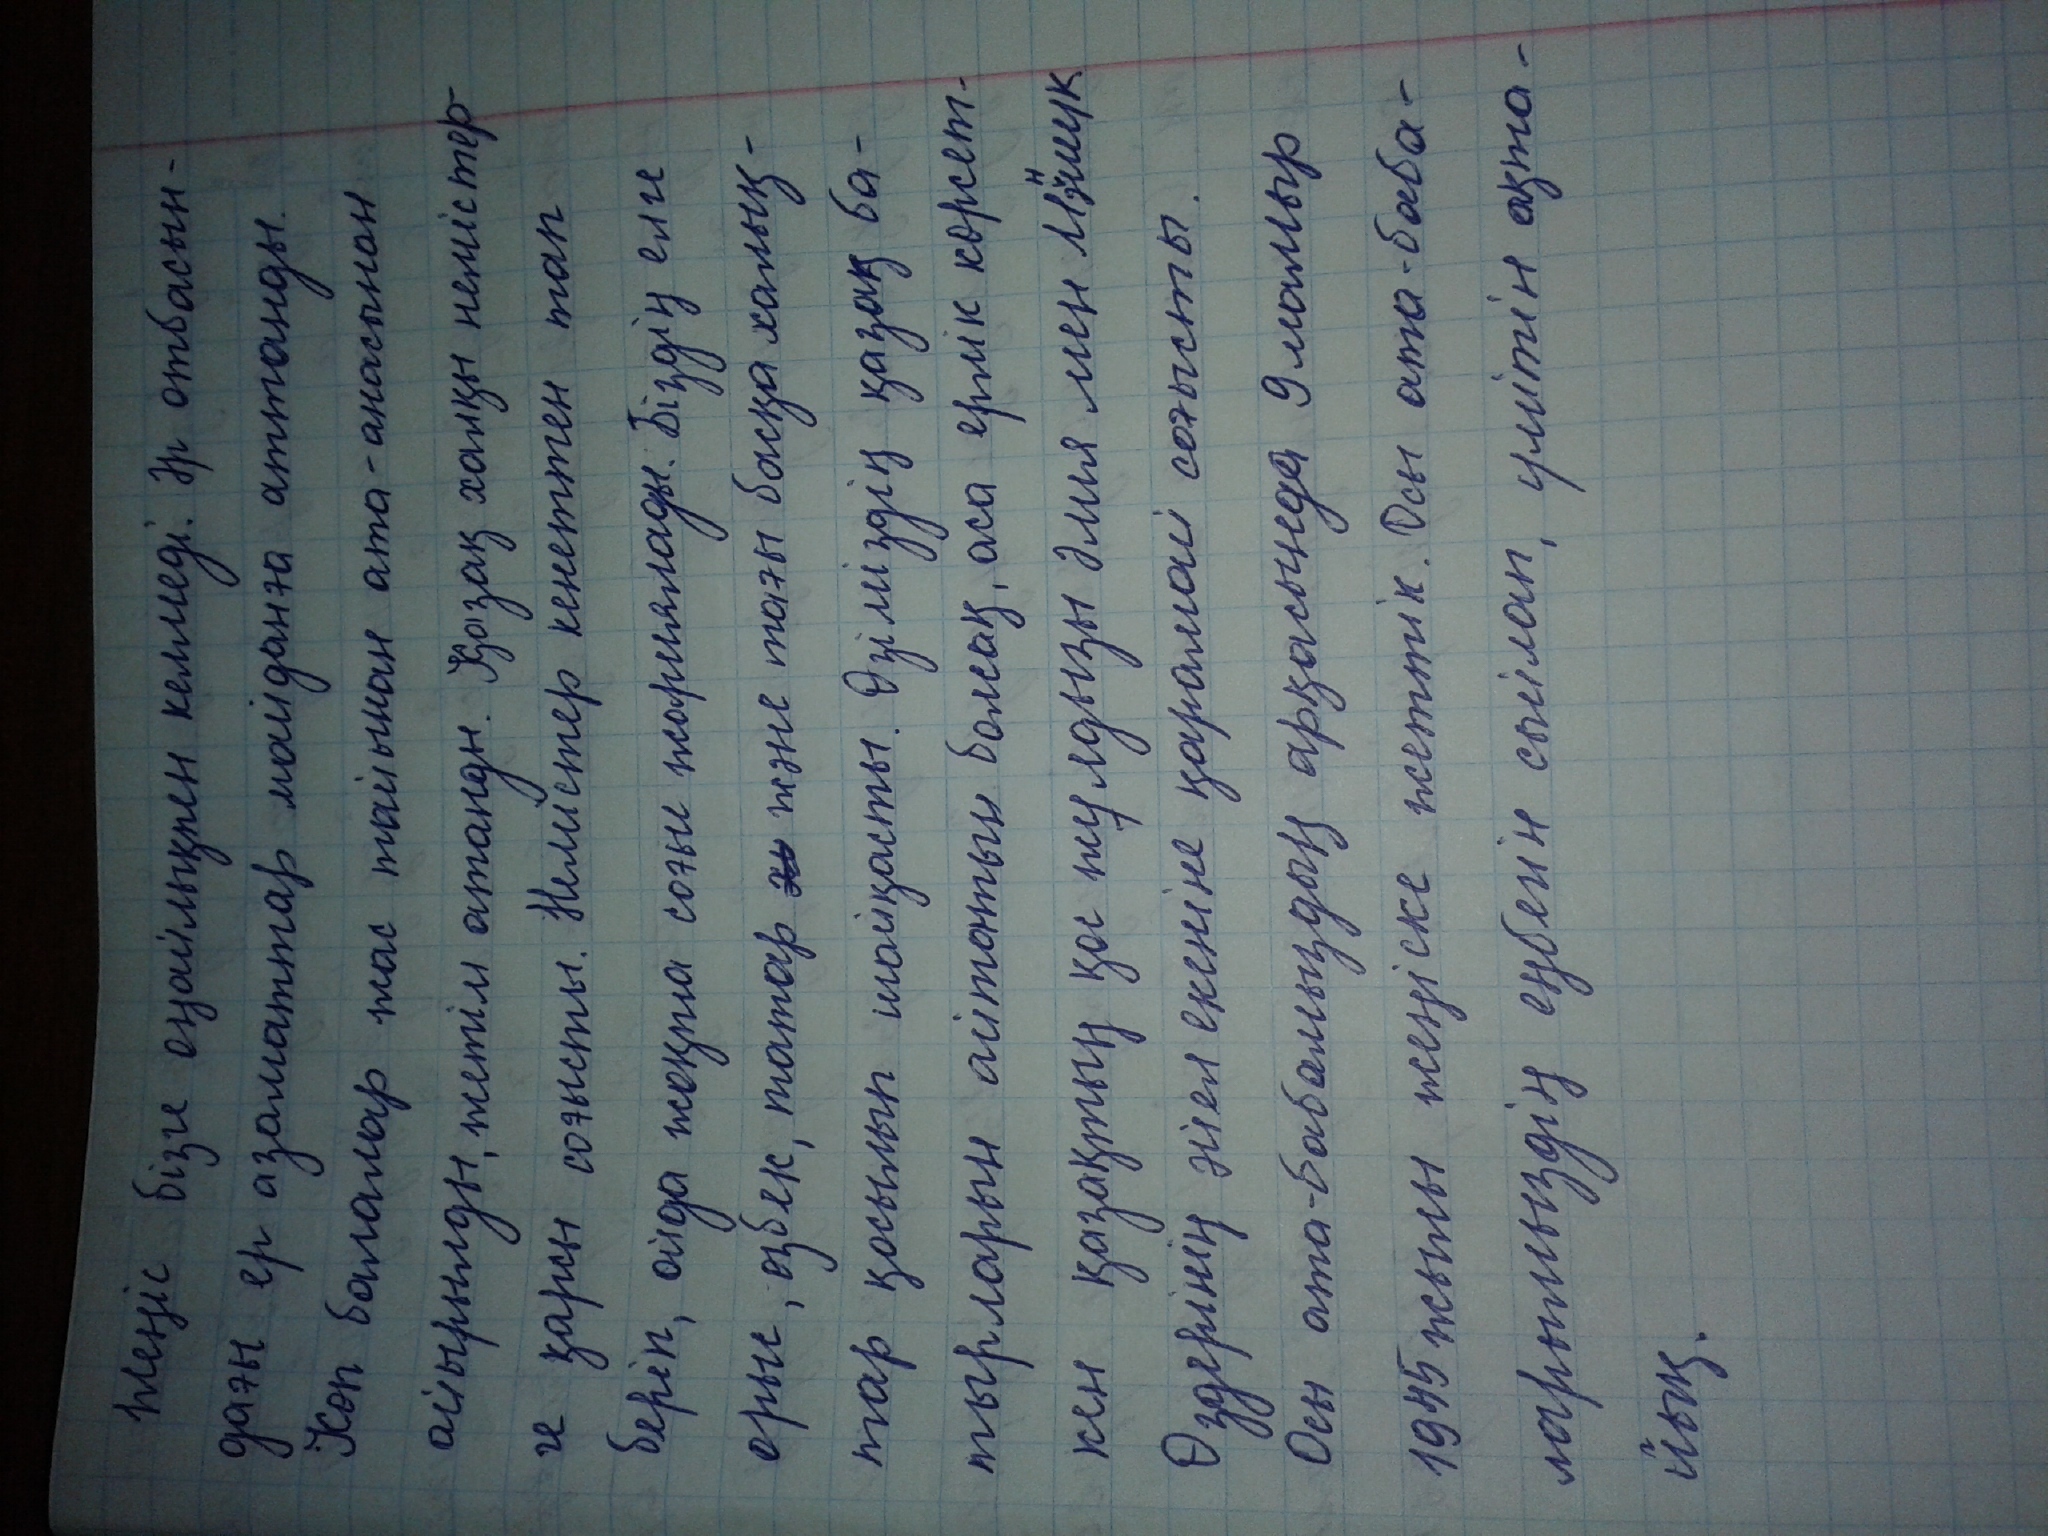 Жеңіс бізге оңайлықпен келмеді. Әр отбасын-
дағы ер азаматтар майданға аттанды.
Көп балалар жас тайынан ата-анасынан
айырылды, жетім атанды. Қазақ халқы немістер
ге қарсы соғысты. Немістер кенеттен тап
беріп, айда жоқта соғыс жариялады. Біздің елге
орыс, өзбек, татар және тағы басқа халық-
тар қосылып шайқасты. Өзіміздің қазақ ба-
тырларын айтатын болсақ, аса ерлік көрсет-
кен қазақтың қос жұлдызы Әлия мен Мәншүк
Өздерінің әйел екеніне қарамай соғысты.
Осы ата-бабамыздың арқасында 9 мамыр
1945 жылы жеңіске жеттік. Осы ата-баба-
ларымыздің еңбегін сыйлап, үмітін ақта-
йық.